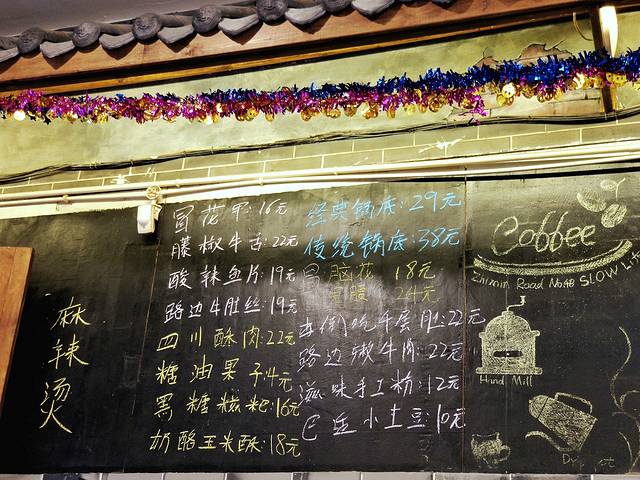 麻辣烫
冒花甲:16元
藤椒牛舌:22元
酸辣鱼片:19元
路边牛肚丝:19元
四川酥肉:22元
糖油果子:4元
黑糖糍粑:16元
奶酪玉米酥:18元
经典锅底:29元
传统锅底:38元
冒脑花 18元
24元
吃千层肚:22元
路边嫩牛肉:22元
滋味手工粉:12元
巴适小土豆:10元
Coffee
Zhimin Road No48 SLOW Life
Hand Mill